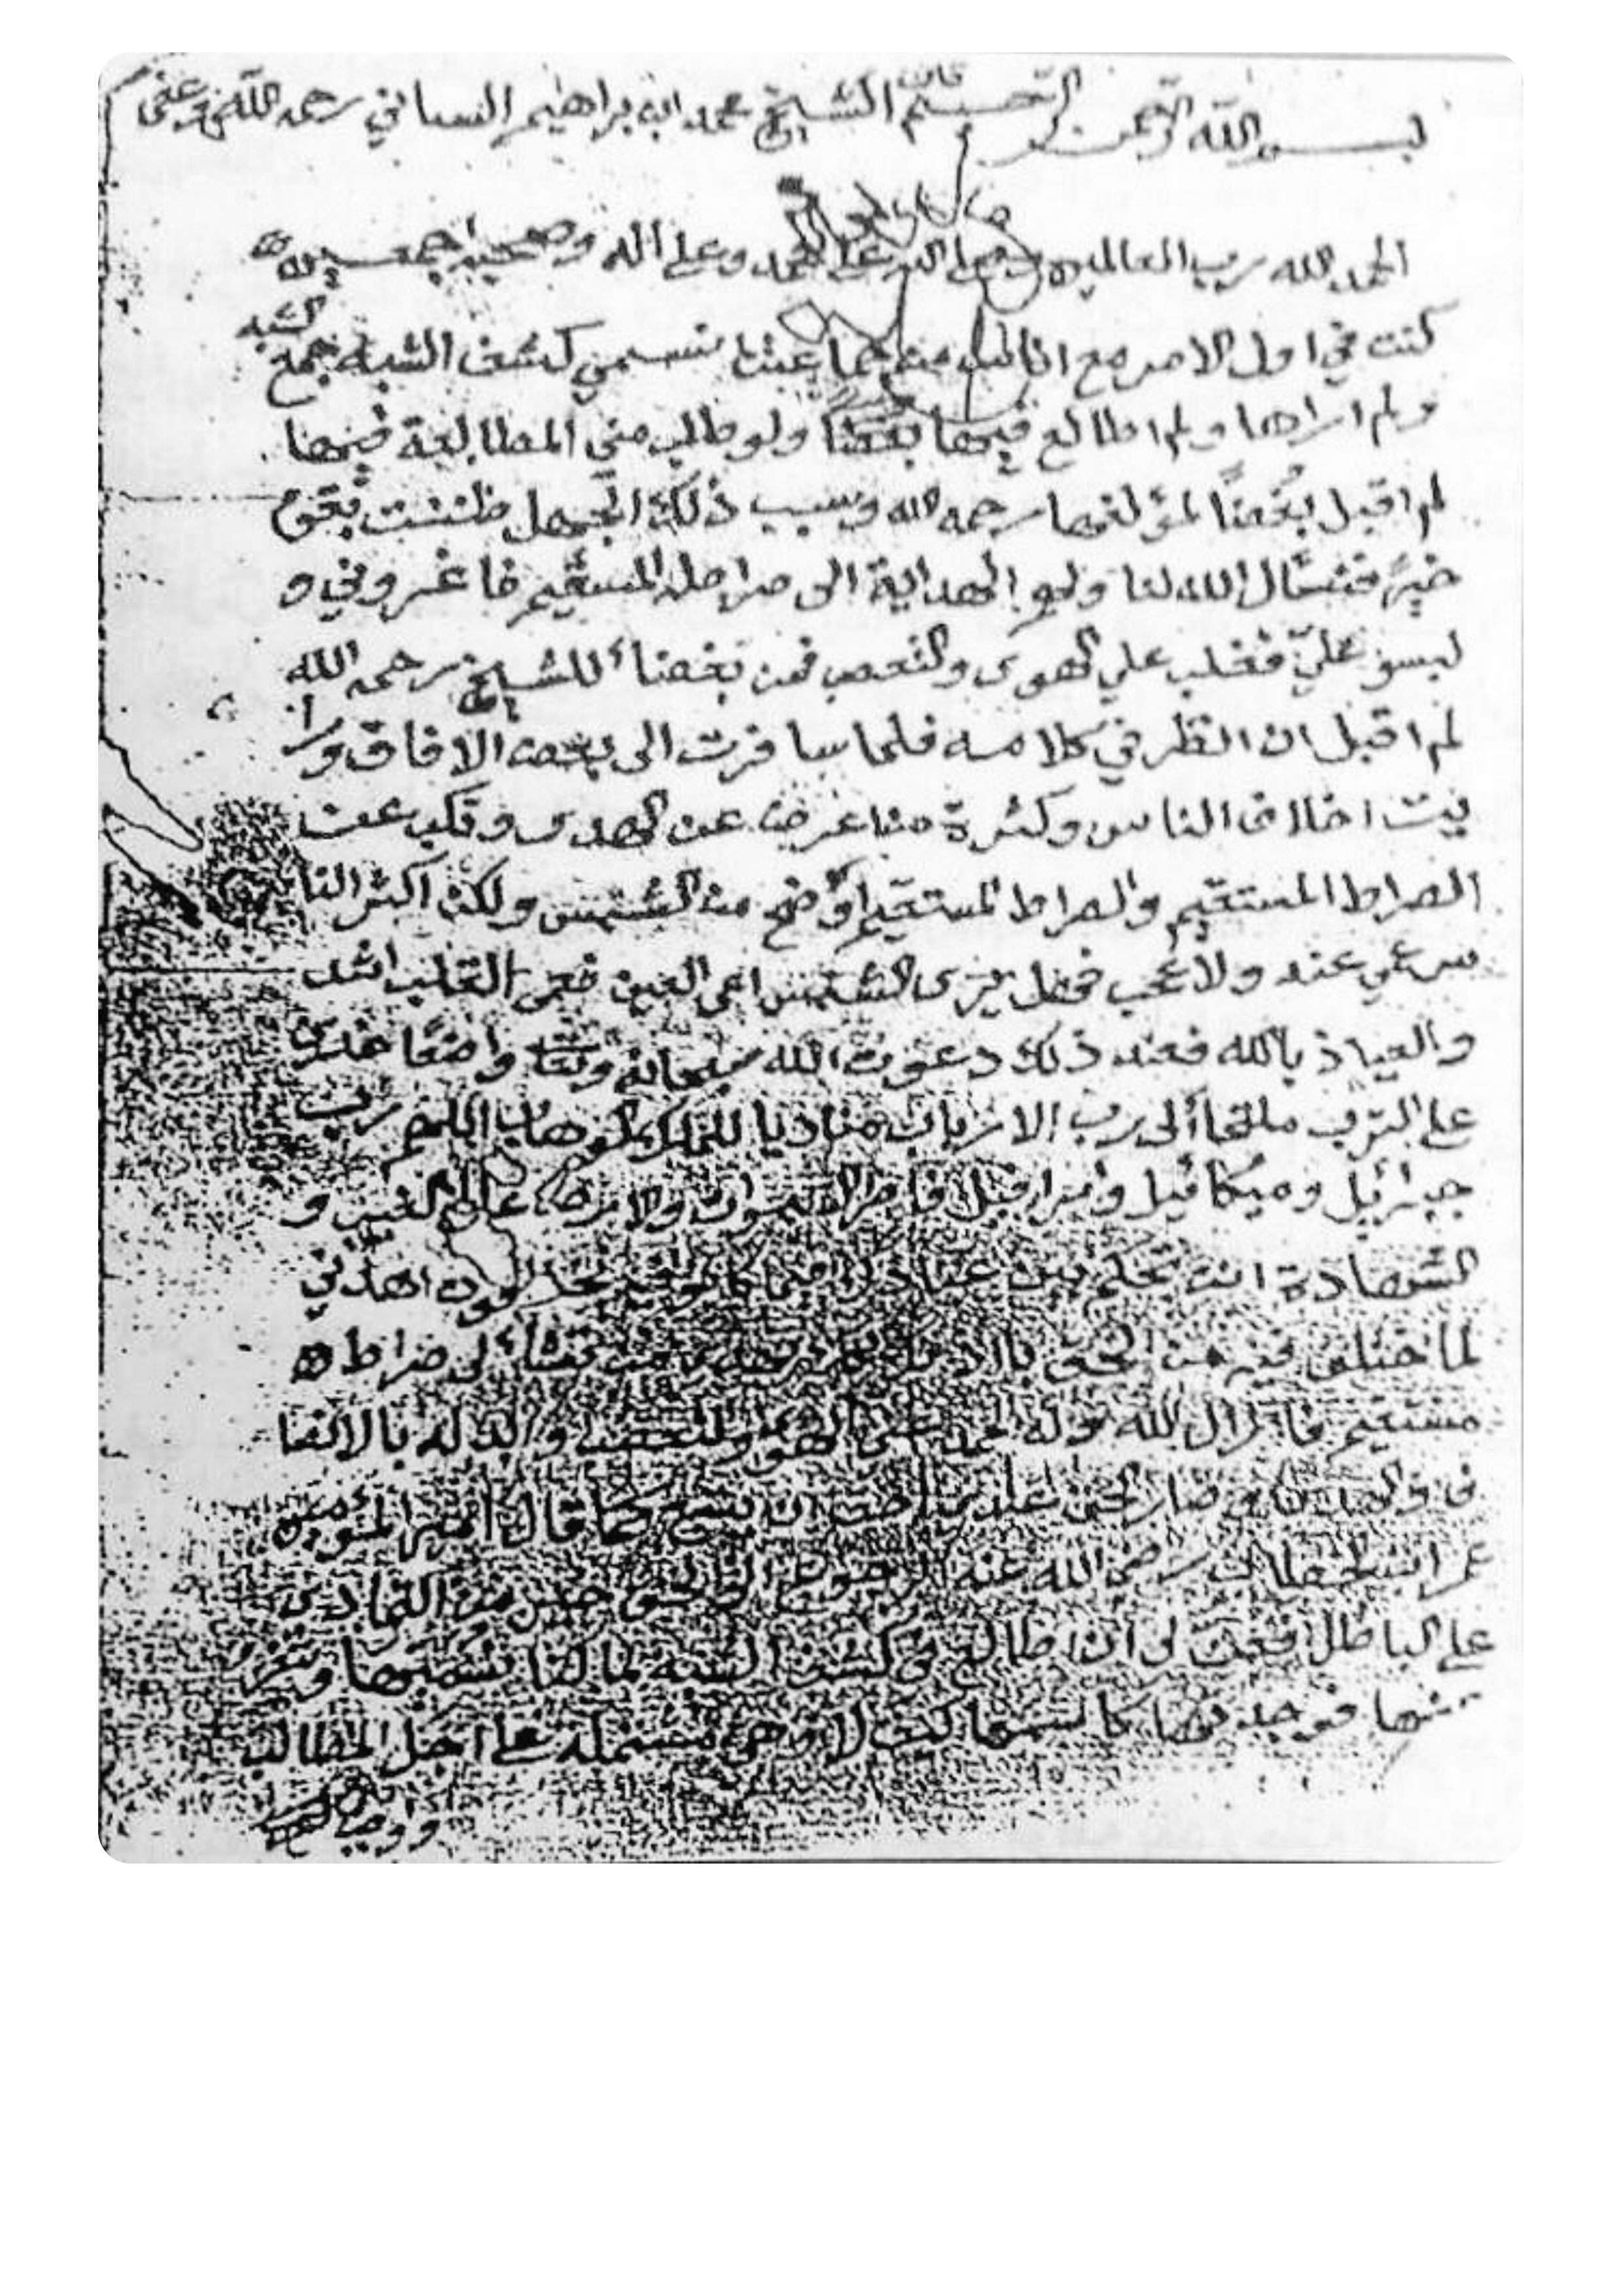 بسم الله الرحمن الرحيم قال الشيخ محمد ابن براهيم السناني رحمه الله وعفى
الحمد لله رب العالمين وصلى الله على محمد وعلى اله وصحبه اجمعين
كنت في اول الامر مع اناس من جماعتنا نسمي كشف الشبه جمع الشبه
ولم اراها ولم اطالع فيها بغضا ولو طلب مني المطالعة فيها
لم اقبل بغضاً لمؤلفها رحمه الله وسبب ذلك الجهل ظننت بقوم
خيرً فنسال الله لنا ولهم الهداية الى صراط المستقيم فاغروني و
لبسو عليّ فغلب علي الهوى والتعصب فمن بغضنا للشيخ رحمه الله
لم اقبل ان انظر في كلامه فلما سافرت الى بعض الافاق ورأ
يت اختلاف الناس وكثرة من اعرض عن الهدى وتكب عن
الصراط المستقيم والصراط المستقيم اوضح من الشمس ولكن اكثر النا
س عمي عنه ولا عجب فهل يرى الشمس اعمى العين فعمى القلب اشد
والعياذ بالله فعند ذلك دعوت الله سبحانه وتعا واضعًا خدي
على الترب ملتجأ الى رب الارباب مناديا للملك الوهاب اللهم رب
جبرائيل وميكائيل واسرافيل فاطر السموات والارض عالم الغيب و
الشهادة انت تحكم بين عبادك فيما كانوا فيه يختلفون اهدني
لما اختلف فيه من الحق باذنك انك تهدي من تشأ الى صراط
مستقيم فازال الله وله الحمد عني الهوى والتعصب وابدله بالانصا
ف وصار الحق عندي احق ان يتبع كما قال امير المؤمنين
عمر ابن الخطاب رضي الله عنه الرجوع الى الحق خير من التمادي
على الباطل فعن لي ان اطالع في كشف الشبه لما لنا نسميها وننفر
عنها فوجدتها كاسمها كيف لا وهي مشتملة على اجل المطالب